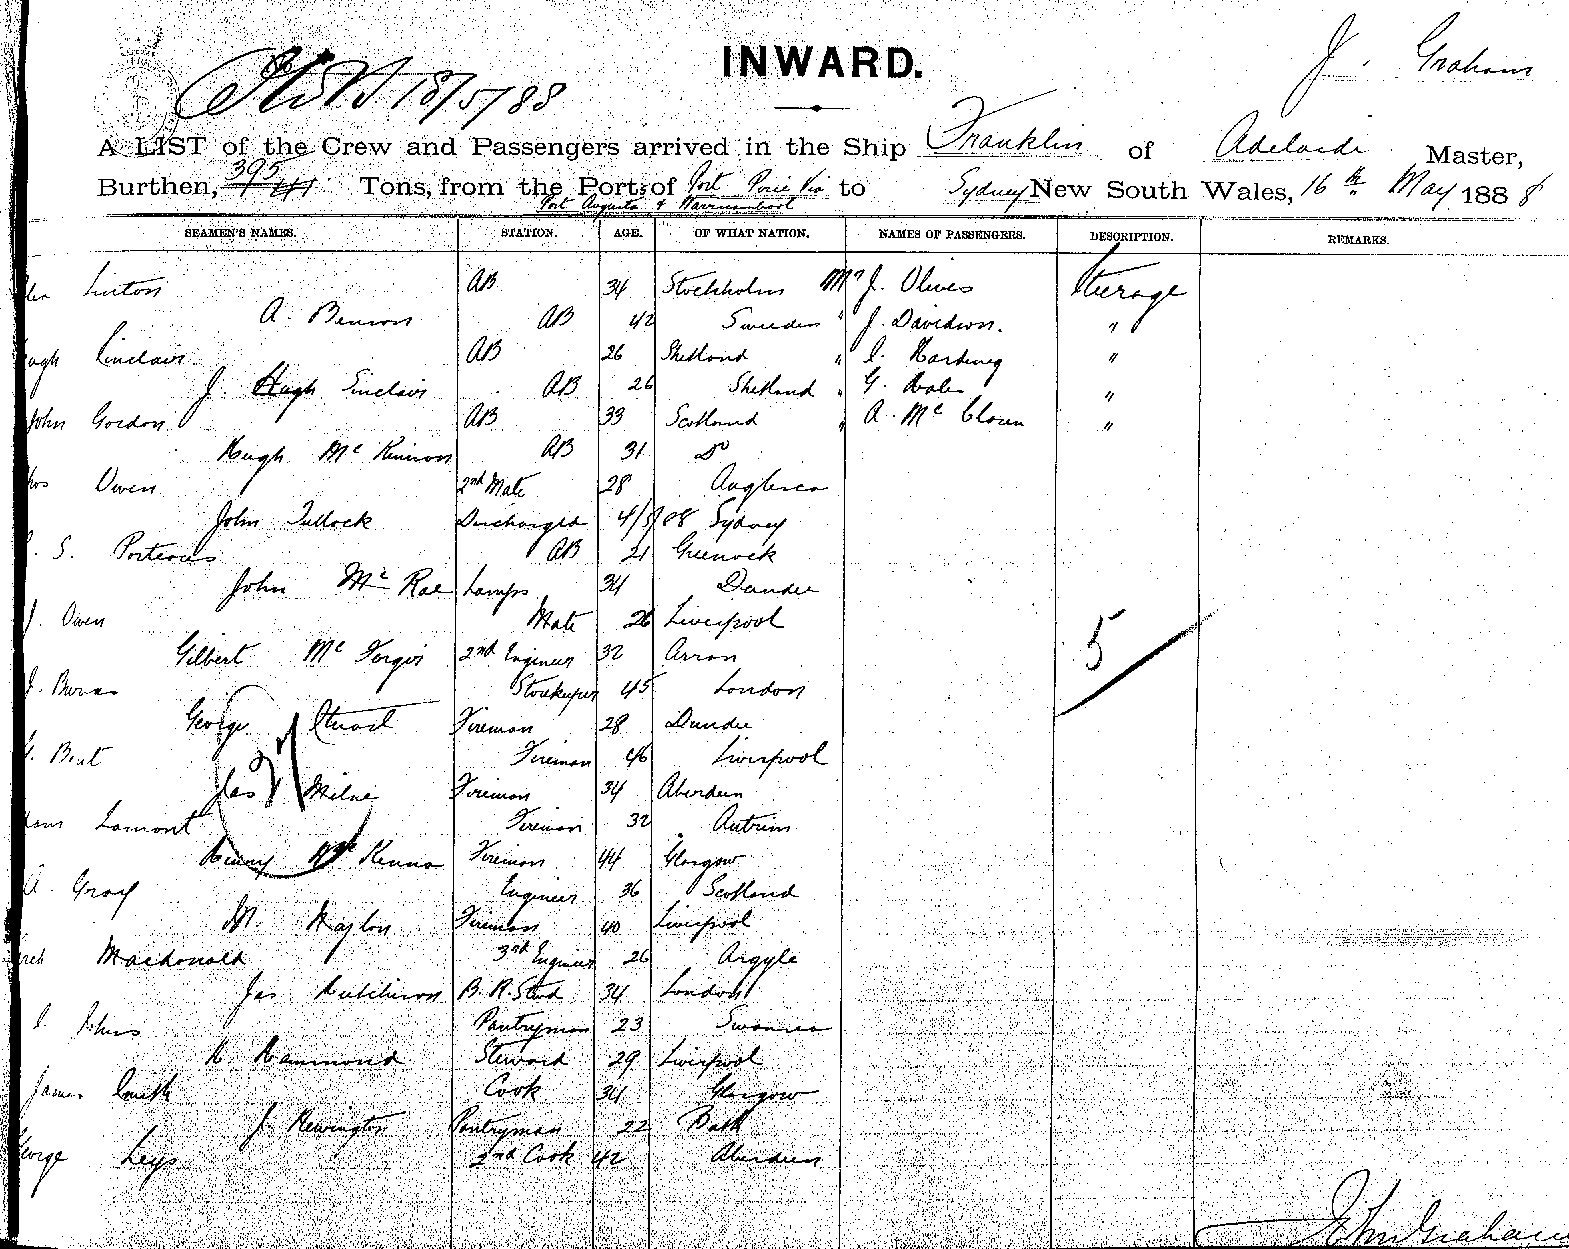 INWARD.
J. Graham
18/5/88
A LIST of the Crew and Passengers arrived in the Ship Franklin of Adelaide Master,
Burthen, 395 Tons, from the Port of Port Pirie Via to Sydney New South Wales, 16th May 1888
Port Augusta & Warrnambool
SEAMEN'S NAMES. STATION. AGE. OF WHAT NATION. NAMES OF PASSENGERS. DESCRIPTION. REMARKS.
Linton AB 34 Stockholm Mr J. Olives Steerage
A. Benson AB 42 Sweden " J. Davidson. "
Sinclair AB 26 Shetland " "
J. Hugh Sinclair AB 26 Shetland " G. "
John Gordon AB 33 Scotland " A. Mc "
Hugh Mc Kinnon AB 31 Do
Owen 2nd Mate 28 Anglesea
John Tullock Discharged 4/5/88 Sydney
S. Porteous AB 21 Greenock
John Mc Rae Lamps 34 Dundee
J. Owen Mate 26 Liverpool
Gilbert Mc 2nd Engineer 32 Arran
J. Burns Storekeeper 45 London
George Stuart Fireman 28 Dundee
Fireman 46 Liverpool
Jas Milne Fireman 34 Aberdeen
Lamont Fireman 32 Antrim
Fireman 44 Glasgow
A. Gray Engineer 36 Scotland
Fireman 40 Liverpool
Macdonald 3rd Engineer 26 Argyle
Jas Hutchison B. R. Stwd 34 London
Johns Pantryman 23 Swansea
H. Hammond Steward 29 Liverpool
James Smith Cook 34 Glasgow
J. Pantryman 22 Bath
George Leys 2nd Cook 42 Aberdeen
5
John Graham